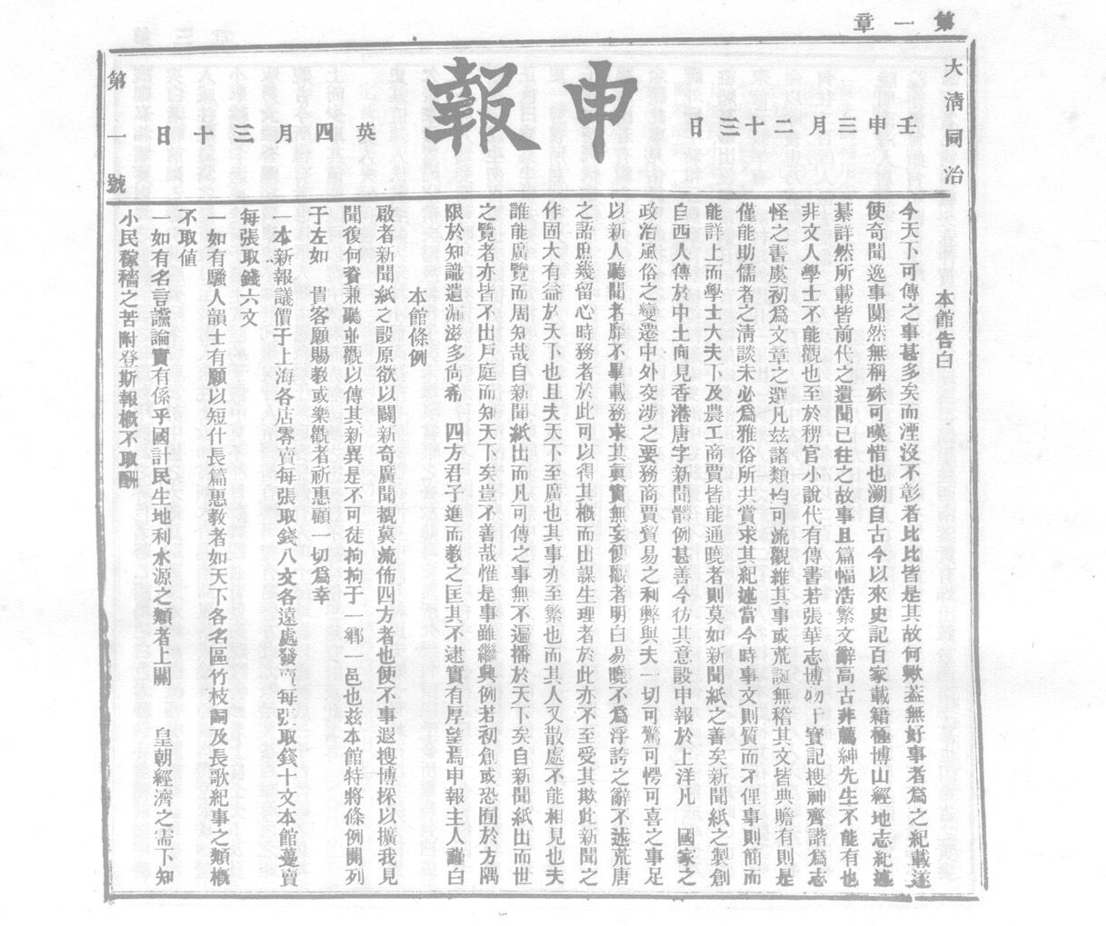 第一章
大清同治
壬申三月二十三日
申報
英四月三十日
第一號
本館告白
今天下可傳之事甚多矣而湮沒不彰者比比皆是其故何歟蓋無好事者為之紀載遂
使奇聞逸事闃然無稱殊可嘆惜也溯自古今以來史記百家載籍極博山經地志紀述
綦詳然所載皆前代之遺聞已往之故事且篇幅浩繁文辭高古非薦紳先生不能有也
非文人學士不能觀也至於稗官小說代有傳書若張華志博物干寶記搜神齊諧為志
怪之書虞初為文章之選凡茲諸類均可流觀維其事或荒誕無稽其文皆典贍有則是
僅能助儒者之清談未必為雅俗所共賞求其紀述當今時事文則質而不俚事則簡而
能詳上而學士大夫下及農工商賈皆能通曉者則莫如新聞紙之善矣新聞紙之製創
自西人傳於中土向見香港唐字新聞體例甚善今仿其意設申報於上洋凡　國家之
政治風俗之變遷中外交涉之要務商賈貿易之利弊與夫一切可驚可愕可喜之事足
以新人聽聞者靡不畢載務求其真實無妄使觀者明白易曉不為浮誇之辭不述荒唐
之語庶幾留心時務者於此可以得其概而出謀生理者於此亦不至受其欺此新聞之
作固大有益於天下也且夫天下至廣也其事亦至繁也而其人又散處不能相見也夫
誰能廣覽而周知哉自新聞紙出而凡可傳之事無不遍播於天下矣自新聞紙出而世
之覽者亦皆不出戶庭而知天下矣豈不善哉惟是事雖繼興例若初創或恐囿於方隅
限於知識遺漏滋多尚希　四方君子進而教之匡其不逮實有厚望焉申報主人謹白
本館條例
啟者新聞紙之設原欲以闢新奇廣聞覩冀流佈四方者也使不事遐搜博採以擴我見
聞復何資兼聽並觀以傳其新異是不可徒拘拘于一鄉一邑也茲本館特將條例開列
于左如　貴客願賜教或樂觀者祈惠顧一切為幸
一本新報議價于上海各店零賣每張取錢八文各遠處發賣每張取錢十文本館躉賣
每張取錢六文
一如有騷人韻士有願以短什長篇惠教者如天下各名區竹枝詞及長歌紀事之類概
不取值
一如有名言讜論實有係乎國計民生地利水源之類者上關　皇朝經濟之需下知
小民稼穡之苦附登斯報概不取酬